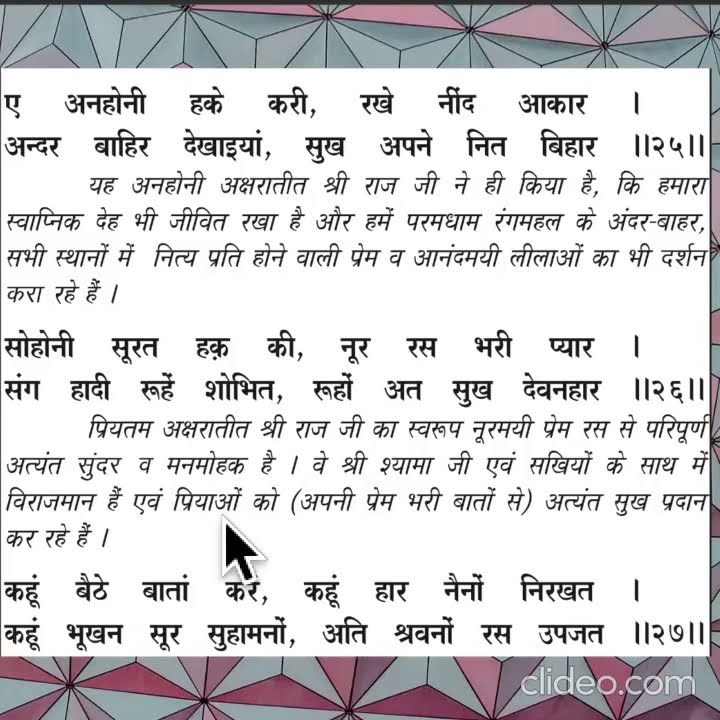 ए अनहोनी हके करी, रखे नींद आकार ।
अन्दर बाहिर देखाइयां, सुख अपने नित बिहार ॥२५॥
यह अनहोनी अक्षरातीत श्री राज जी ने ही किया है, कि हमारा
स्वाप्निक देह भी जीवित रखा है और हमें परमधाम रंगमहल के अंदर-बाहर,
सभी स्थानों में नित्य प्रति होने वाली प्रेम व आनंदमयी लीलाओं का भी दर्शन
करा रहे हैं ।
सोहोनी सूरत हक़ की, नूर रस भरी प्यार ।
संग हादी रूहें शोभित, रूहों अत सुख देवनहार ॥२६॥
प्रियतम अक्षरातीत श्री राज जी का स्वरूप नूरमयी प्रेम रस से परिपूर्ण
अत्यंत सुंदर व मनमोहक है । वे श्री श्यामा जी एवं सखियों के साथ में
विराजमान हैं एवं प्रियाओं को (अपनी प्रेम भरी बातों से) अत्यंत सुख प्रदान
कर रहे हैं ।
कहूं बैठे बातां करें, कहूं हार नैनों निरखत ।
कहूं भूखन सूर सुहामनों, अति श्रवनों रस उपजत ॥२७॥
clideo.com